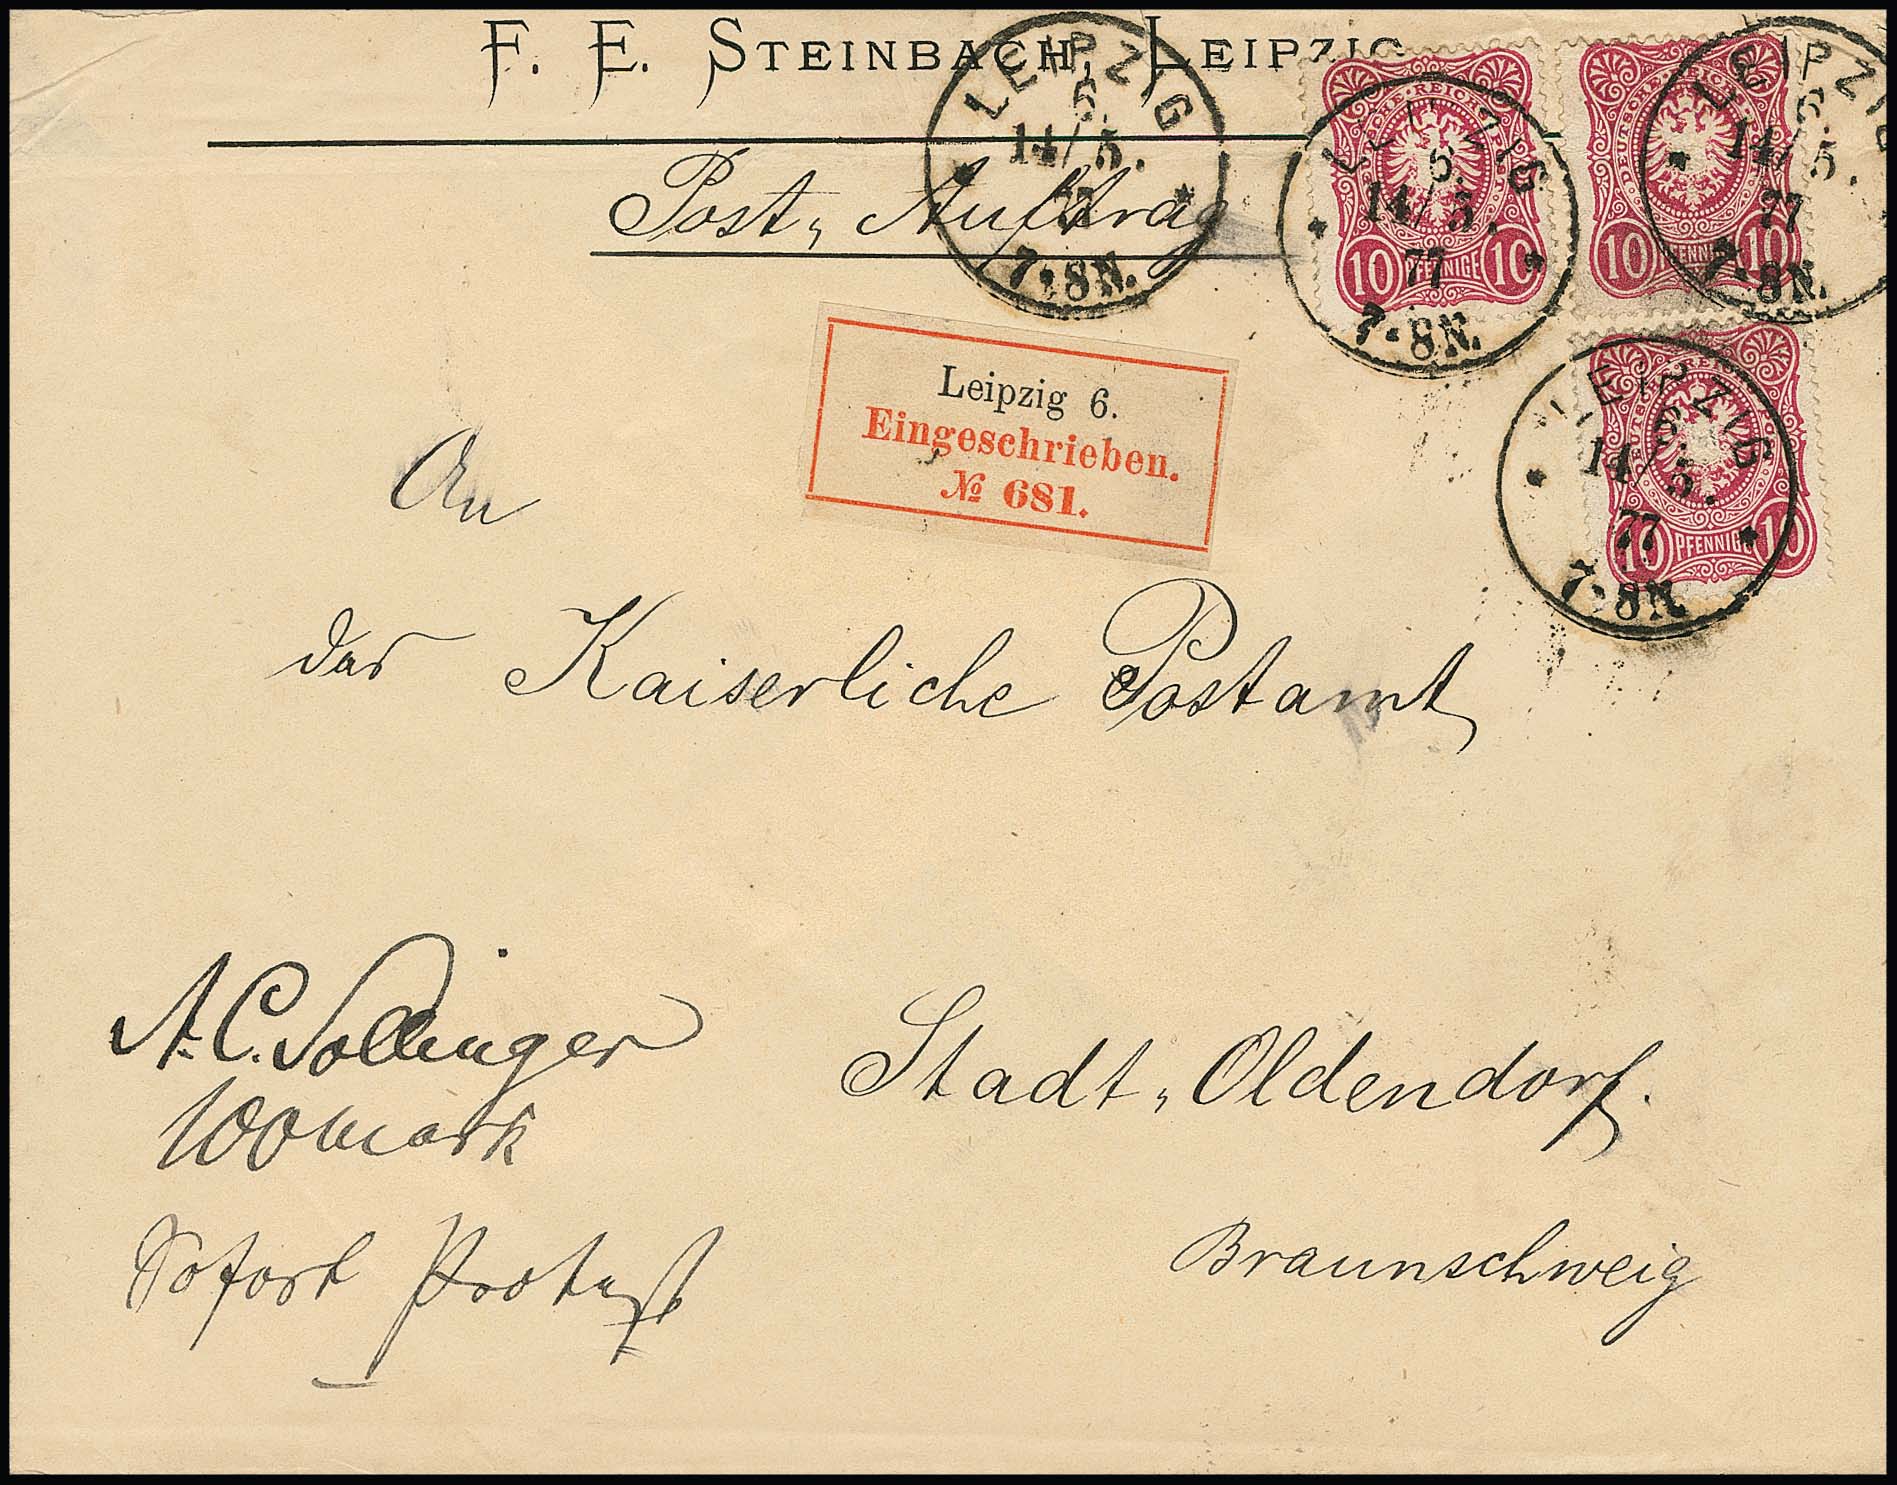 F. E. STEINBACH, LEIPZIG
Post„ Auftrag
LEIPZIG
6.
14/5.
77
7-8N.
DEUTSCHE REICHS
10 PFENNIGE 10
LEIPZIG
6.
14/5.
77
7-8N.
DEUTSCHE REICHS
10 PFENNIGE 10
LEIPZIG
6.
14/5.
77
7-8N.
10 PFENNIGE 10
LEIPZIG
6.
14/5.
77
7-8N.
Leipzig 6.
Eingeschrieben.
№ 681.
An
das Kaiserliche Postamt
A. C. Sollinger
100 Mark
Sofort Protest
Stadt„ Oldendorf.
Braunschweig